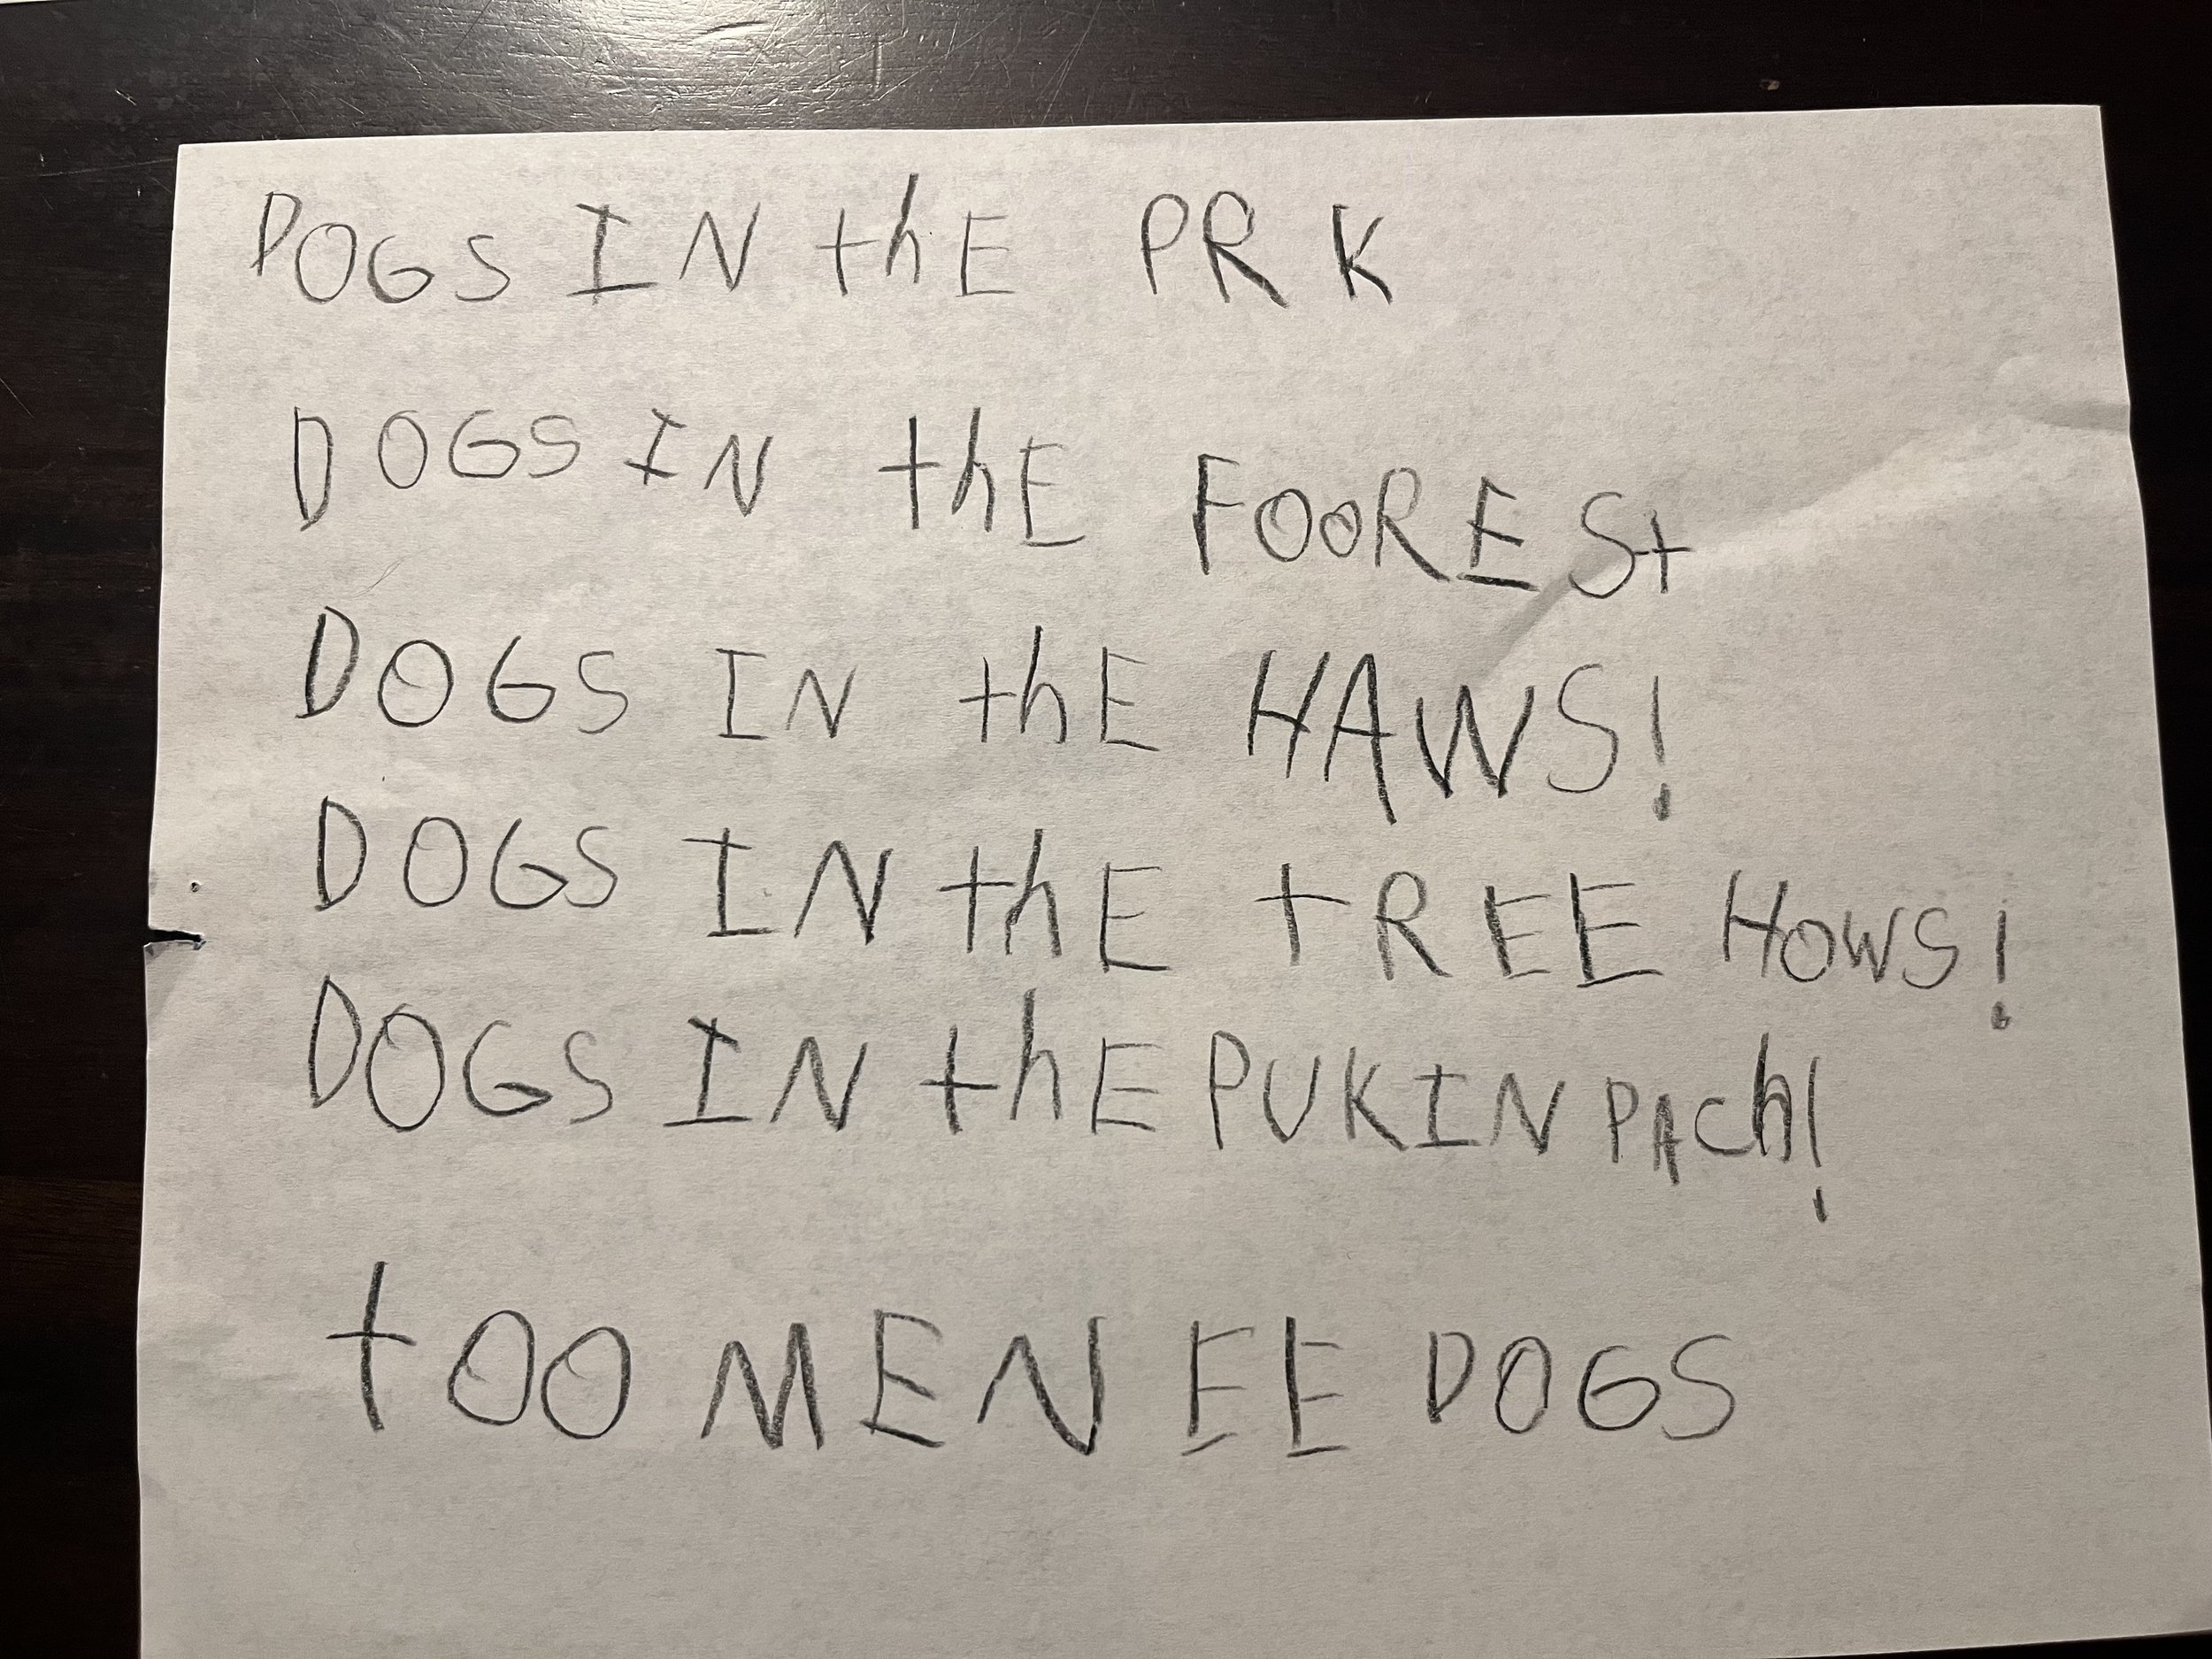 DOGS IN thE PRK
DOGS IN thE FOORESt
DOGS IN thE HAWS!
DOGS IN thE tREE HOWS!
DOGS IN thE PUKIN PACh!
tOO MENEE DOGS